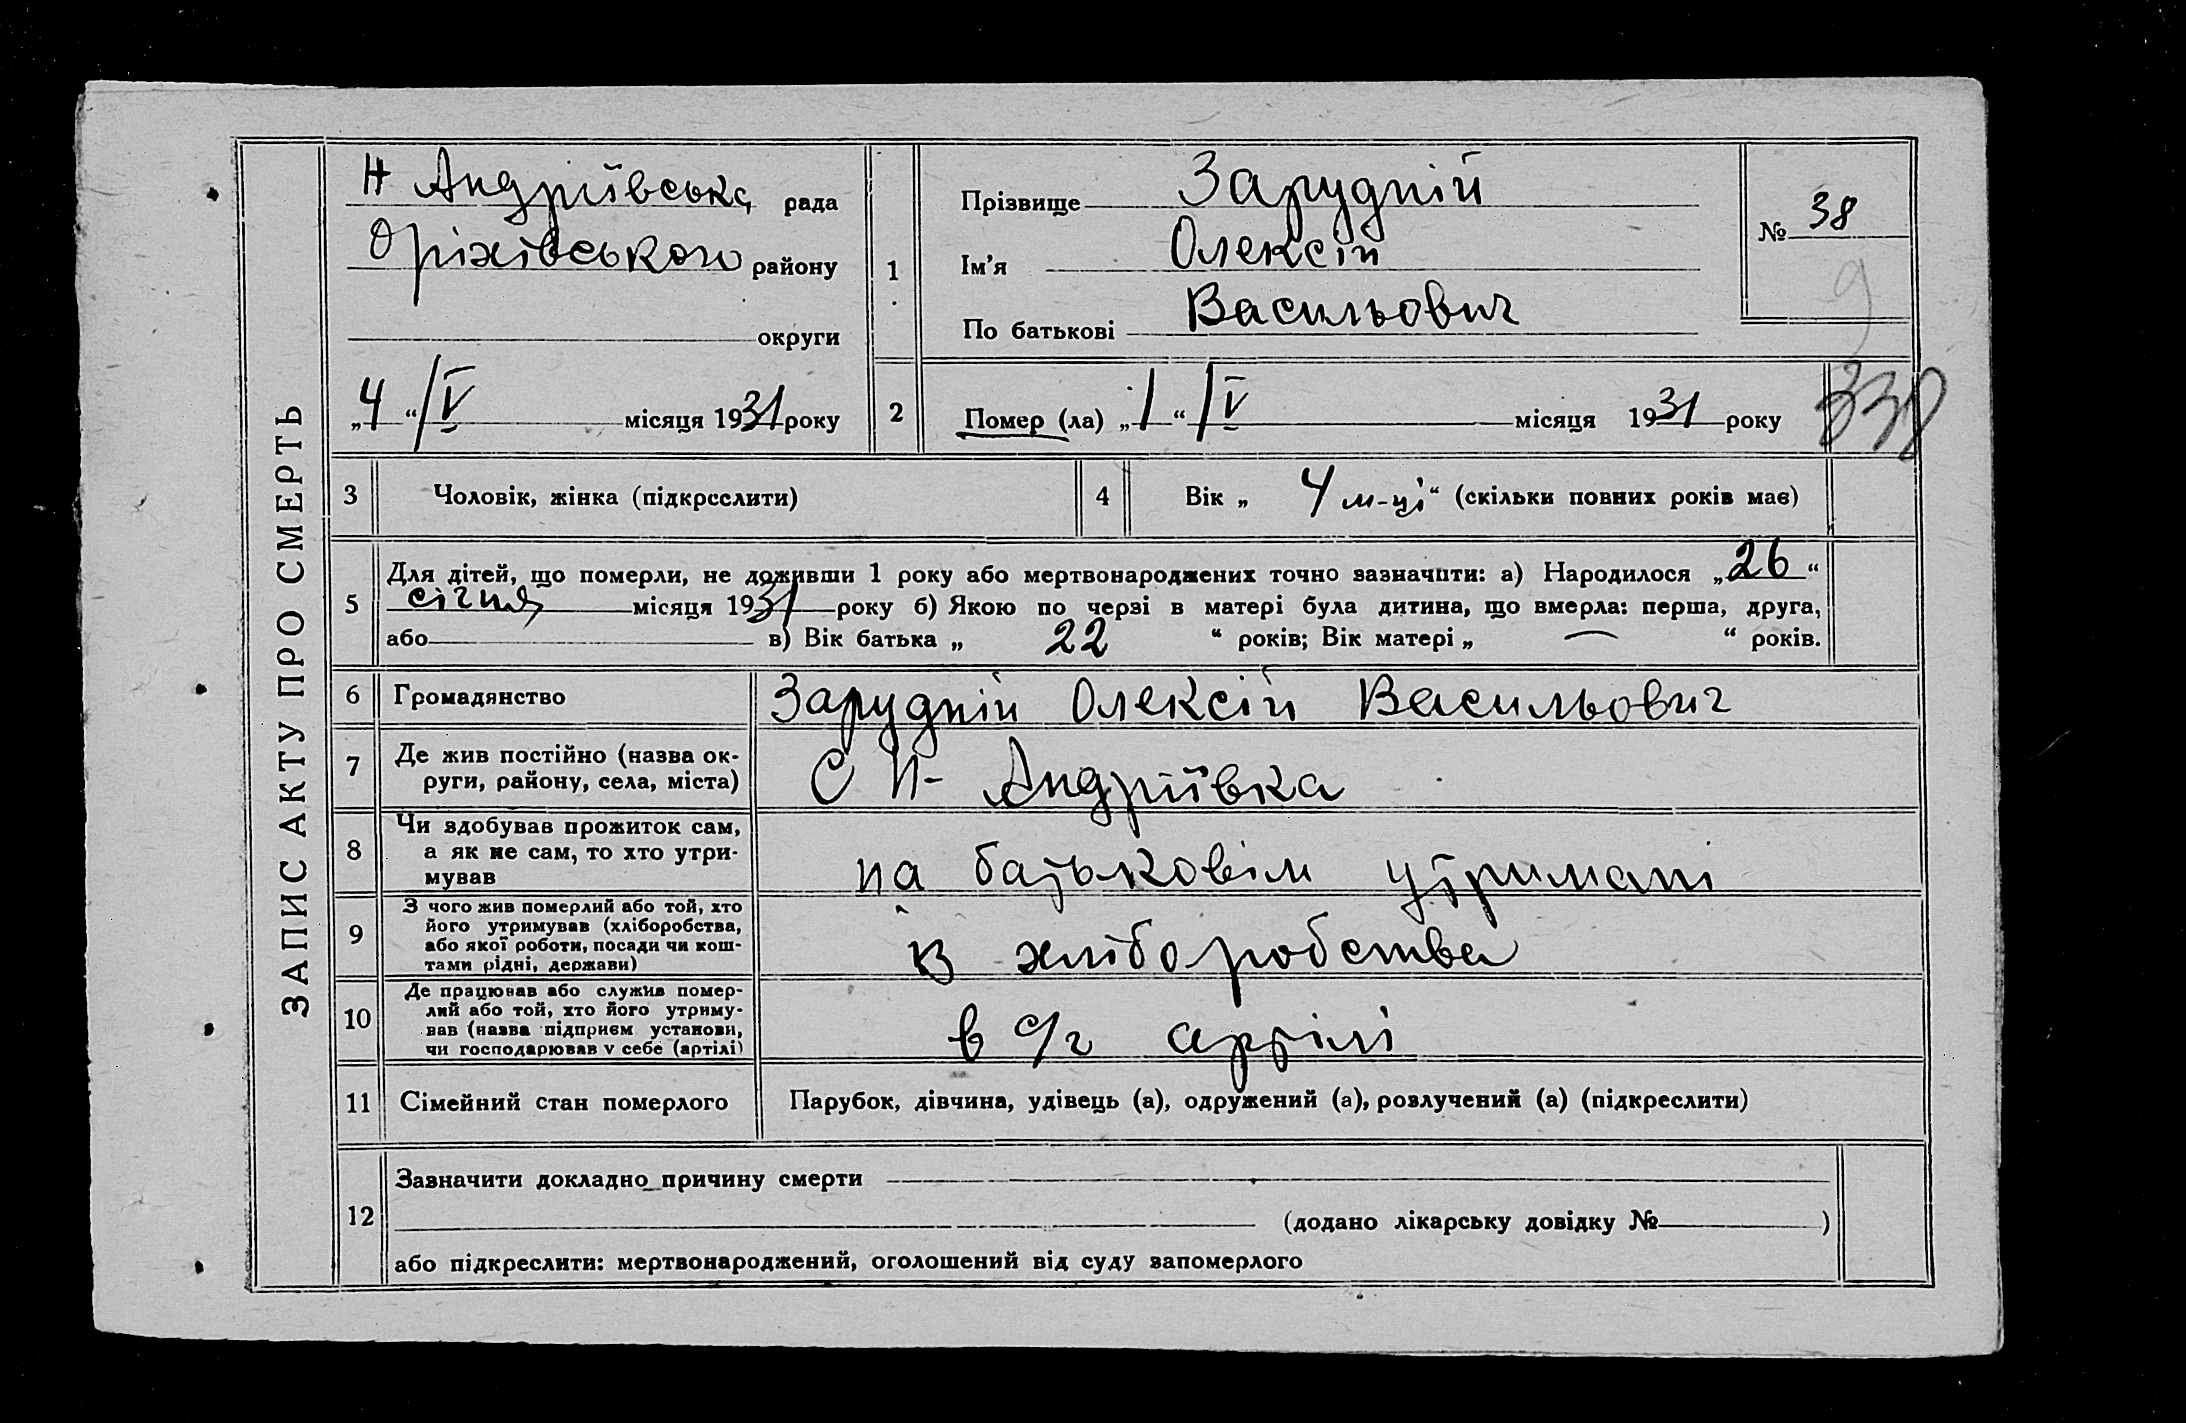 ЗАПИС АКТУ ПРО СМЕРТЬ
Н Андріївська рада
Оріхівського району
округи
„4“ /V місяця 1931 року
1
Прізвище Зарудній
Ім’я Олексій
По батькові Васильович
№ 38
9
2
Помер (ла) „1“ /V місяця 1931 року
338
3 Чоловік, жінка (підкреслити)
4 Вік „ 4 м-ці “ (скільки повних років має)
5 Для дітей, що померли, не доживши 1 року або мертвонароджених точно зазначити: а) Народилося „26“
січня місяця 1931 року б) Якою по черзі в матері була дитина, що вмерла: перша, друга,
або в) Вік батька „ 22 “ років; Вік матері „ — “ років.
6 Громадянство Зарудній Олексій Васильович
7 Де жив постійно (назва ок-
руги, району, села, міста) С Н- Андріївка
8 Чи здобував прожиток сам,
а як не сам, то хто утри-
мував на батьковім утримані
9 З чого жив померлий або той, хто
його утримував (хліборобства,
або якої роботи, посади чи кош-
тами рідні, держави) із хліборобства
10 Де працював або служив помер-
лий або той, хто його утриму-
вав (назва підприєм установи,
чи господарював у себе (артілі) в с/г артілі
11 Сімейний стан померлого Парубок, дівчина, удівець (а), одружений (а), розлучений (а) (підкреслити)
12 Зазначити докладно причину смерти
(додано лікарську довідку № )
або підкреслити: мертвонароджений, оголошений від суду запомерлого